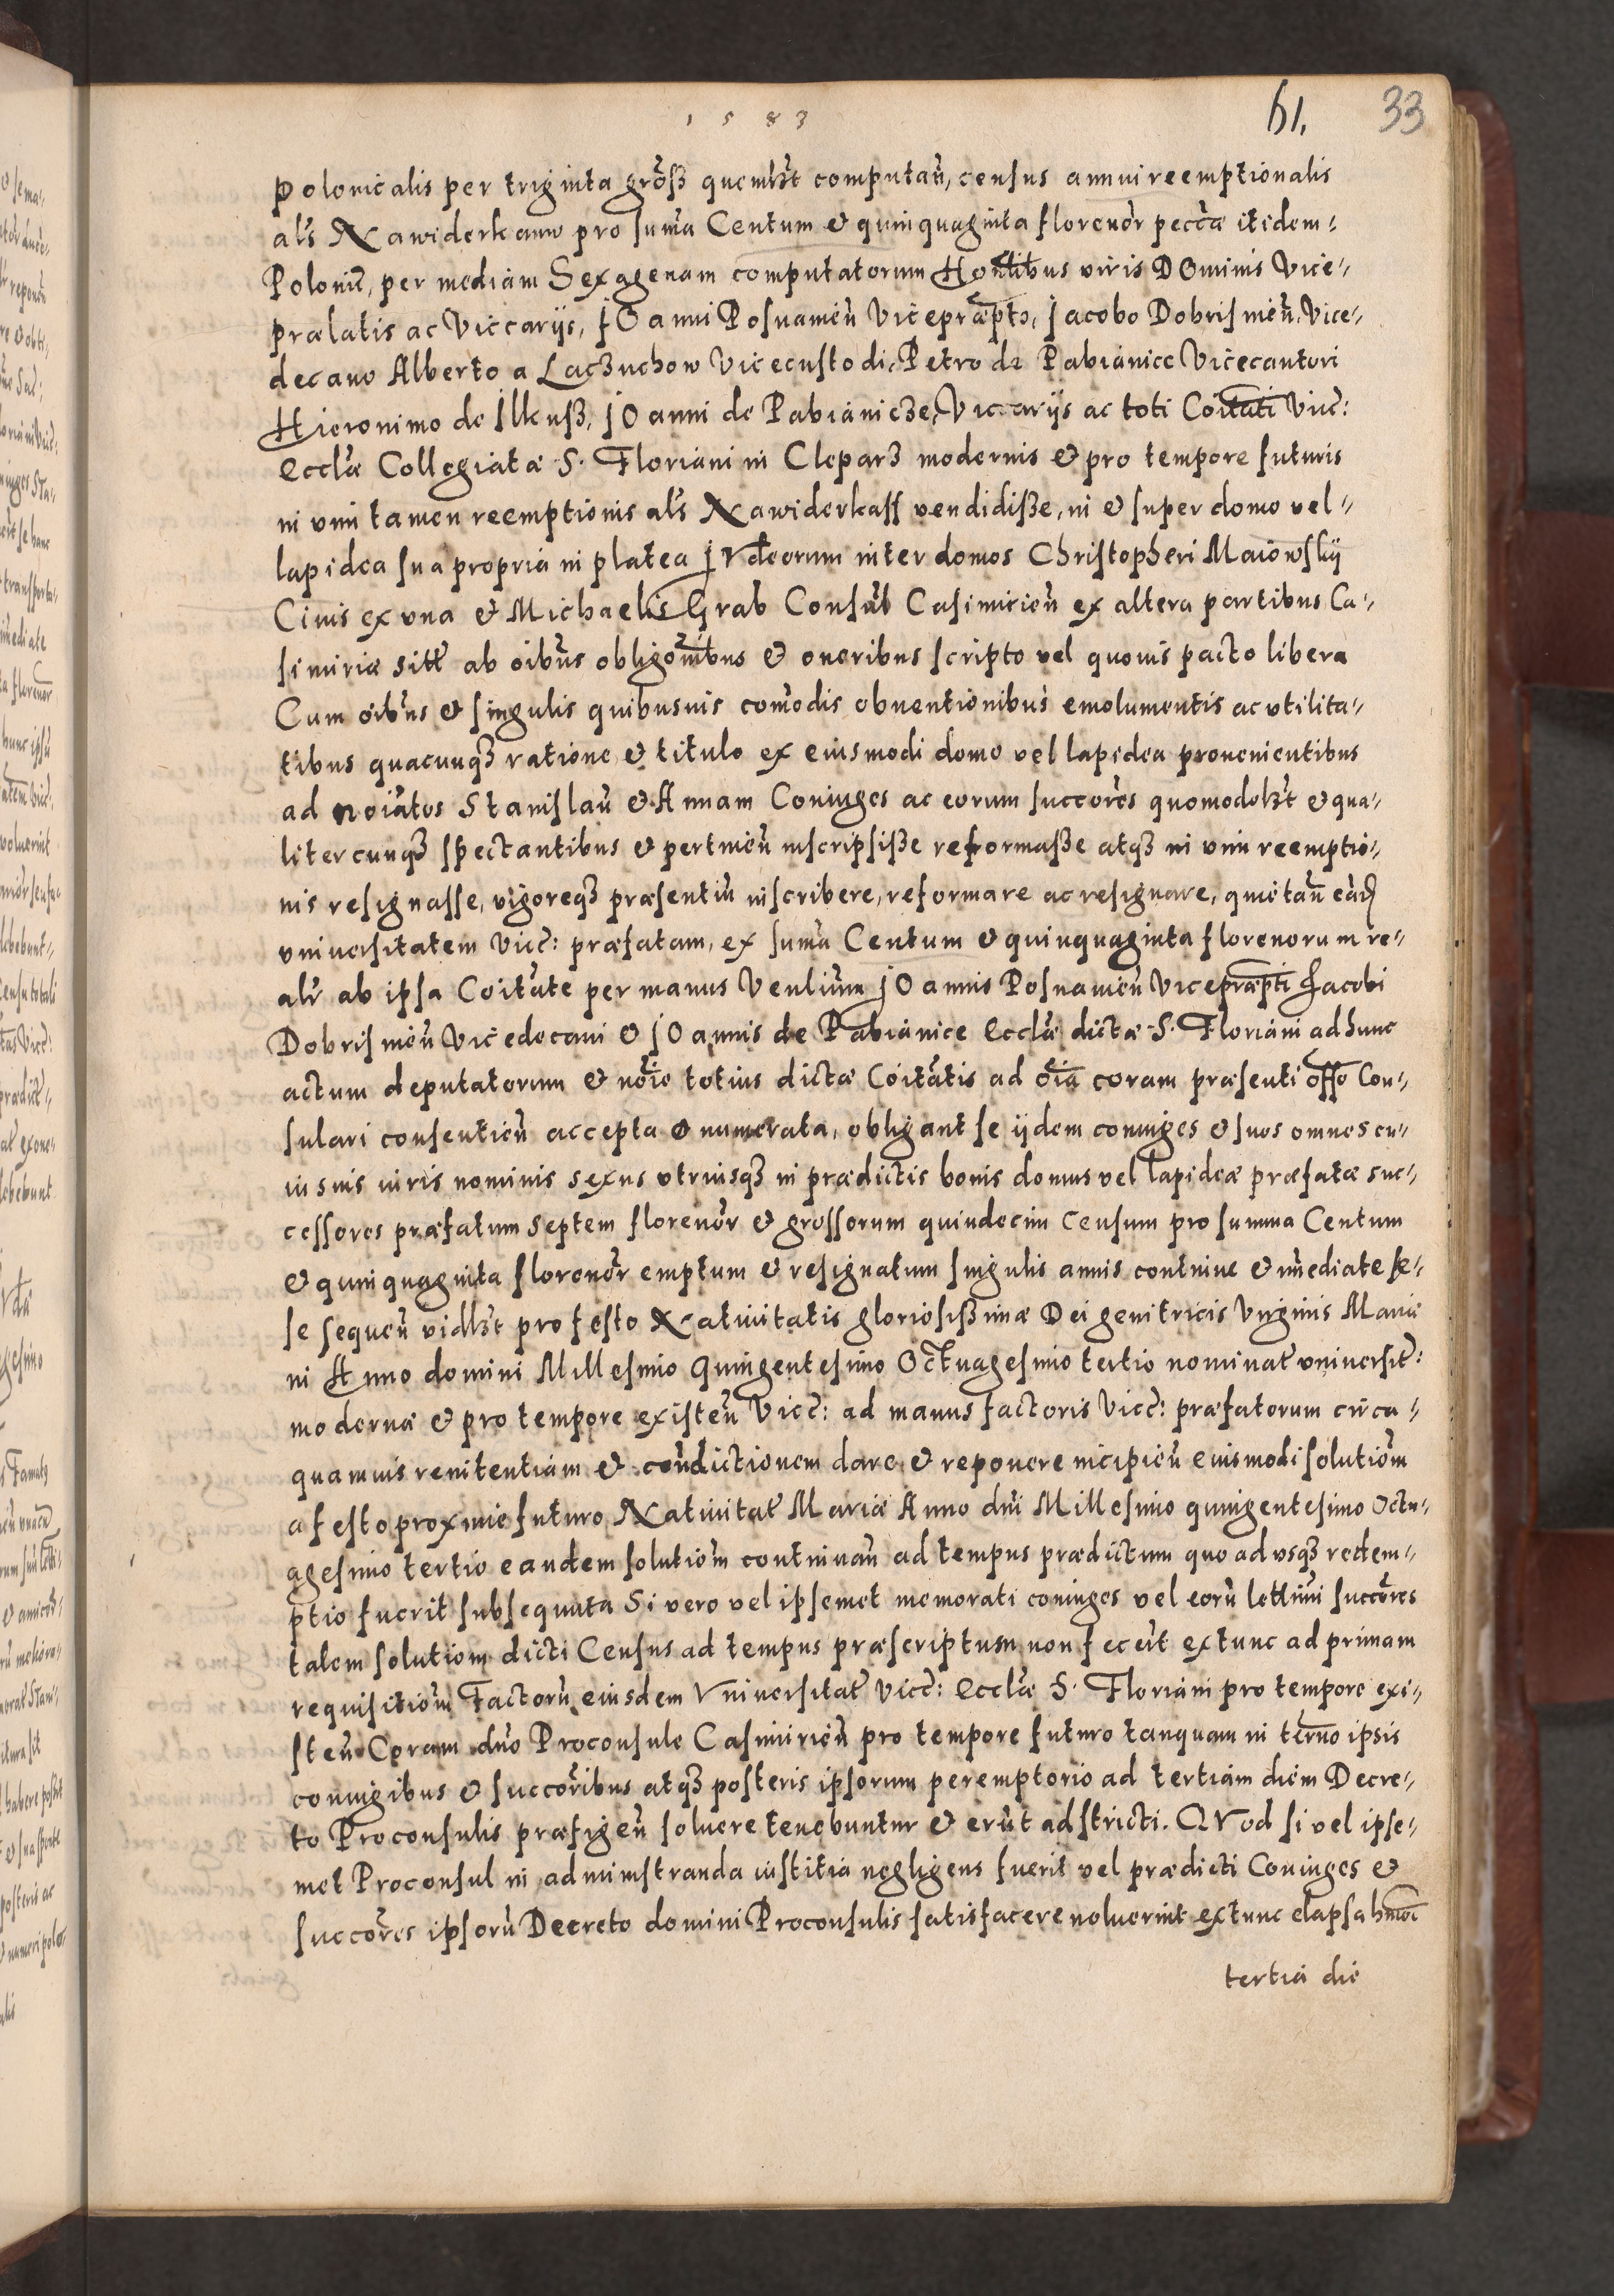 1583
61. 33
Polonicalis per triginta gross quemlꝫt computan̄, census annui reemptionalis
als Nawiderkauw pro summa Centum & quinquaginta florenor pecc̄æ itidem-
Polonic̄, per mediam Sexagenam computatorum Hon̄libus viris DOminis Vice-
prælatis ac Viccarijs, JOanni Posnamen̄ Viceprapto, Jacobo Dobrisinen̄, Vice-
decano Alberto a Laczuchow Vicecustodi, Petro de Pabianicc Vicecantori
Hieronimo de Ilkusz, JOanni de Pabianicze, Viccarijs ac toti Coitati Vicc:
Ecclæ Collegiatæ S. Floriani in Clepars modernis & pro tempore futuris
in vim tamen reemptionis als Nawiderkaff vendidisse, in & super domo vel-
lapidea sua propria in platea JVdeorum inter domos Christopheri Maiowskij
Ciuis ex vna & Michaelis Grab Consul Casimirien̄ ex altera partibus Ca-
simiriæ sitt ab oibus obligonibus & oneribus scripto vel quouis pacto libera
Cum oibus & singulis quibusuis comodis obuentionibus emolumentis ac vtilita-
tibus quacunqꝫ ratione & titulo ex eiusmodi domo vel lapidea prouenientibus
ad noiatos Stanislau & Annam Coniuges ac eorum succores quomodolꝫt & qua-
litercunqꝫ spectantibus & pertinen̄ inscripsisse reformasse atqꝫ in vim reemptio-
nis resignasse, vigoreqꝫ præsentiu inscribere, reformare ac resignare, quietan̄ eand
vniuersitatem Vicc: præfatam, ex suma Centum & quinquaginta florenorum re-
alr ab ipsa Coitate per manus Venlium JOannis Posnamen̄ Viceprapti Jacobi
Dobrisinen̄ Vicedecani & JOannis de Pabianice Ecclæ dictæ S. Floriani ad hunc
actum deputatorum & noie totius dictæ Coitatis ad oia coram præsenti offo Con-
sulari consentien̄ accepta & numerata, obligant se ijdem coniuges & suos omnes cu-
iusuis iuris nominis sexus vtriusqꝫ in prædictis bonis domus vel lapideæ præfatæ suc-
cessores præfatum septem florenor & grossorum quindecim Censum pro summa Centum
& quinquaginta florenor emptum & resignatum singulis annis continue & imediate se-
se sequen̄ vidlꝫt pro festo Natiuitatis gloriosissimæ Dei genitricis Virginis Mariæ
in Anno domini Millesimo Quingentesimo Octuagesimo tertio nominat vniuersit:
modernæ & pro tempore existen̄ Vicc: ad manus factoris Vicc: præfatorum circa-
quamuis renitentiam & condictionem dare & reponere incipien̄ eiusmodi solutiom
a festo proxime futuro Natiuitat Mariæ Anno dni Millesimo quingentesimo Octu-
agesimo tertio eandem solutiom continuan̄ ad tempus prædictum quo ad vsqꝫ redem-
ptio fuerit subsequuta Si vero vel ipsemet memorati coniuges vel eoru lettimi succores
talem solutiom dicti Census ad tempus præscriptum non fecerit extunc ad primam
requisitiom Factoru eiusdem Vniuersitat Vicc: Ecclæ S. Floriani pro tempore exi-
sten̄ Coram dno Proconsule Casimirien̄ pro tempore futuro tanquam in termo ipsis
coniugibus & succoribus atqꝫ posteris ipsorum peremptorio ad tertiam diem Decre-
to Proconsulis præfigen̄ soluere tenebuntur & erut adstricti. QVod si vel ipse-
met Proconsul in administranda iustitia negligens fuerit vel prædicti Coniuges &
succores ipsoru Decreto domini Proconsulis satisfacere noluerint extunc elapsa hmoi
tertia die